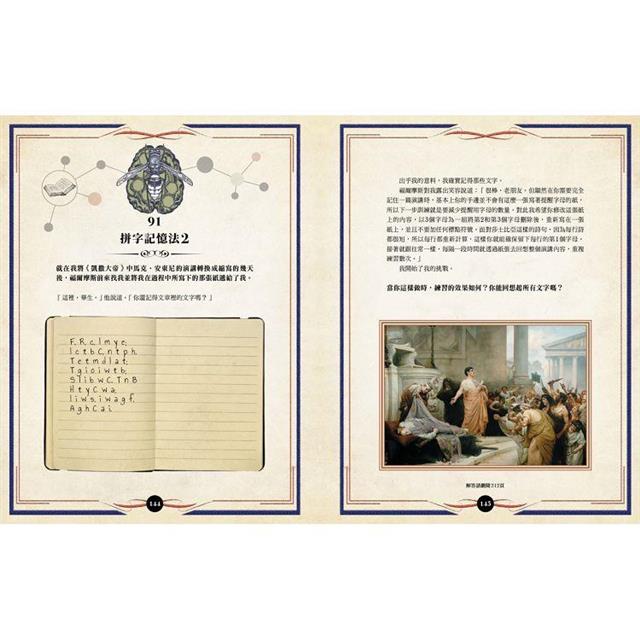 91
拼字記憶法2
就在我將《凱撒大帝》中馬克．安東尼的演講轉換成縮寫的幾天
後，福爾摩斯前來找我並將我在過程中所寫下的那張紙遞給了我。
「這裡，華生。」他說道，「你還記得文章裡的文字嗎？」
F,R,c,lmye;
IctbC,ntph.
Tetmdlat;
Tgioiwtb;
SlibwC.TnB
HtyCwa:
Iiws,iwagf,
AghCai.
144
出乎我的意料，我確實記得那些文字。
福爾摩斯對我露出笑容說道：「很棒，老朋友，但顯然在你需要完全
記住一篇演講時，基本上你的手邊並不會有這麼一張寫著提醒字母的紙，
所以下一步訓練就是要減少提醒用字母的數量。對此我希望你修改這張紙
上的內容，以3個字母為一組將第2和第3個字母刪除後，重新寫在一張
紙上，並且不要加任何標點符號。面對莎士比亞這樣的詩句，因為每行詩
都很短，所以每行都重新計算，這樣你就能確保留下每行的第1個字母，
接著就跟往常一樣，每隔一段時間就透過紙張去回想整個演講內容，重複
練習數次。」
我開始了我的挑戰。
當你這樣做時，練習的效果如何？你能回想起所有文字嗎？
解答請翻閱212頁
145